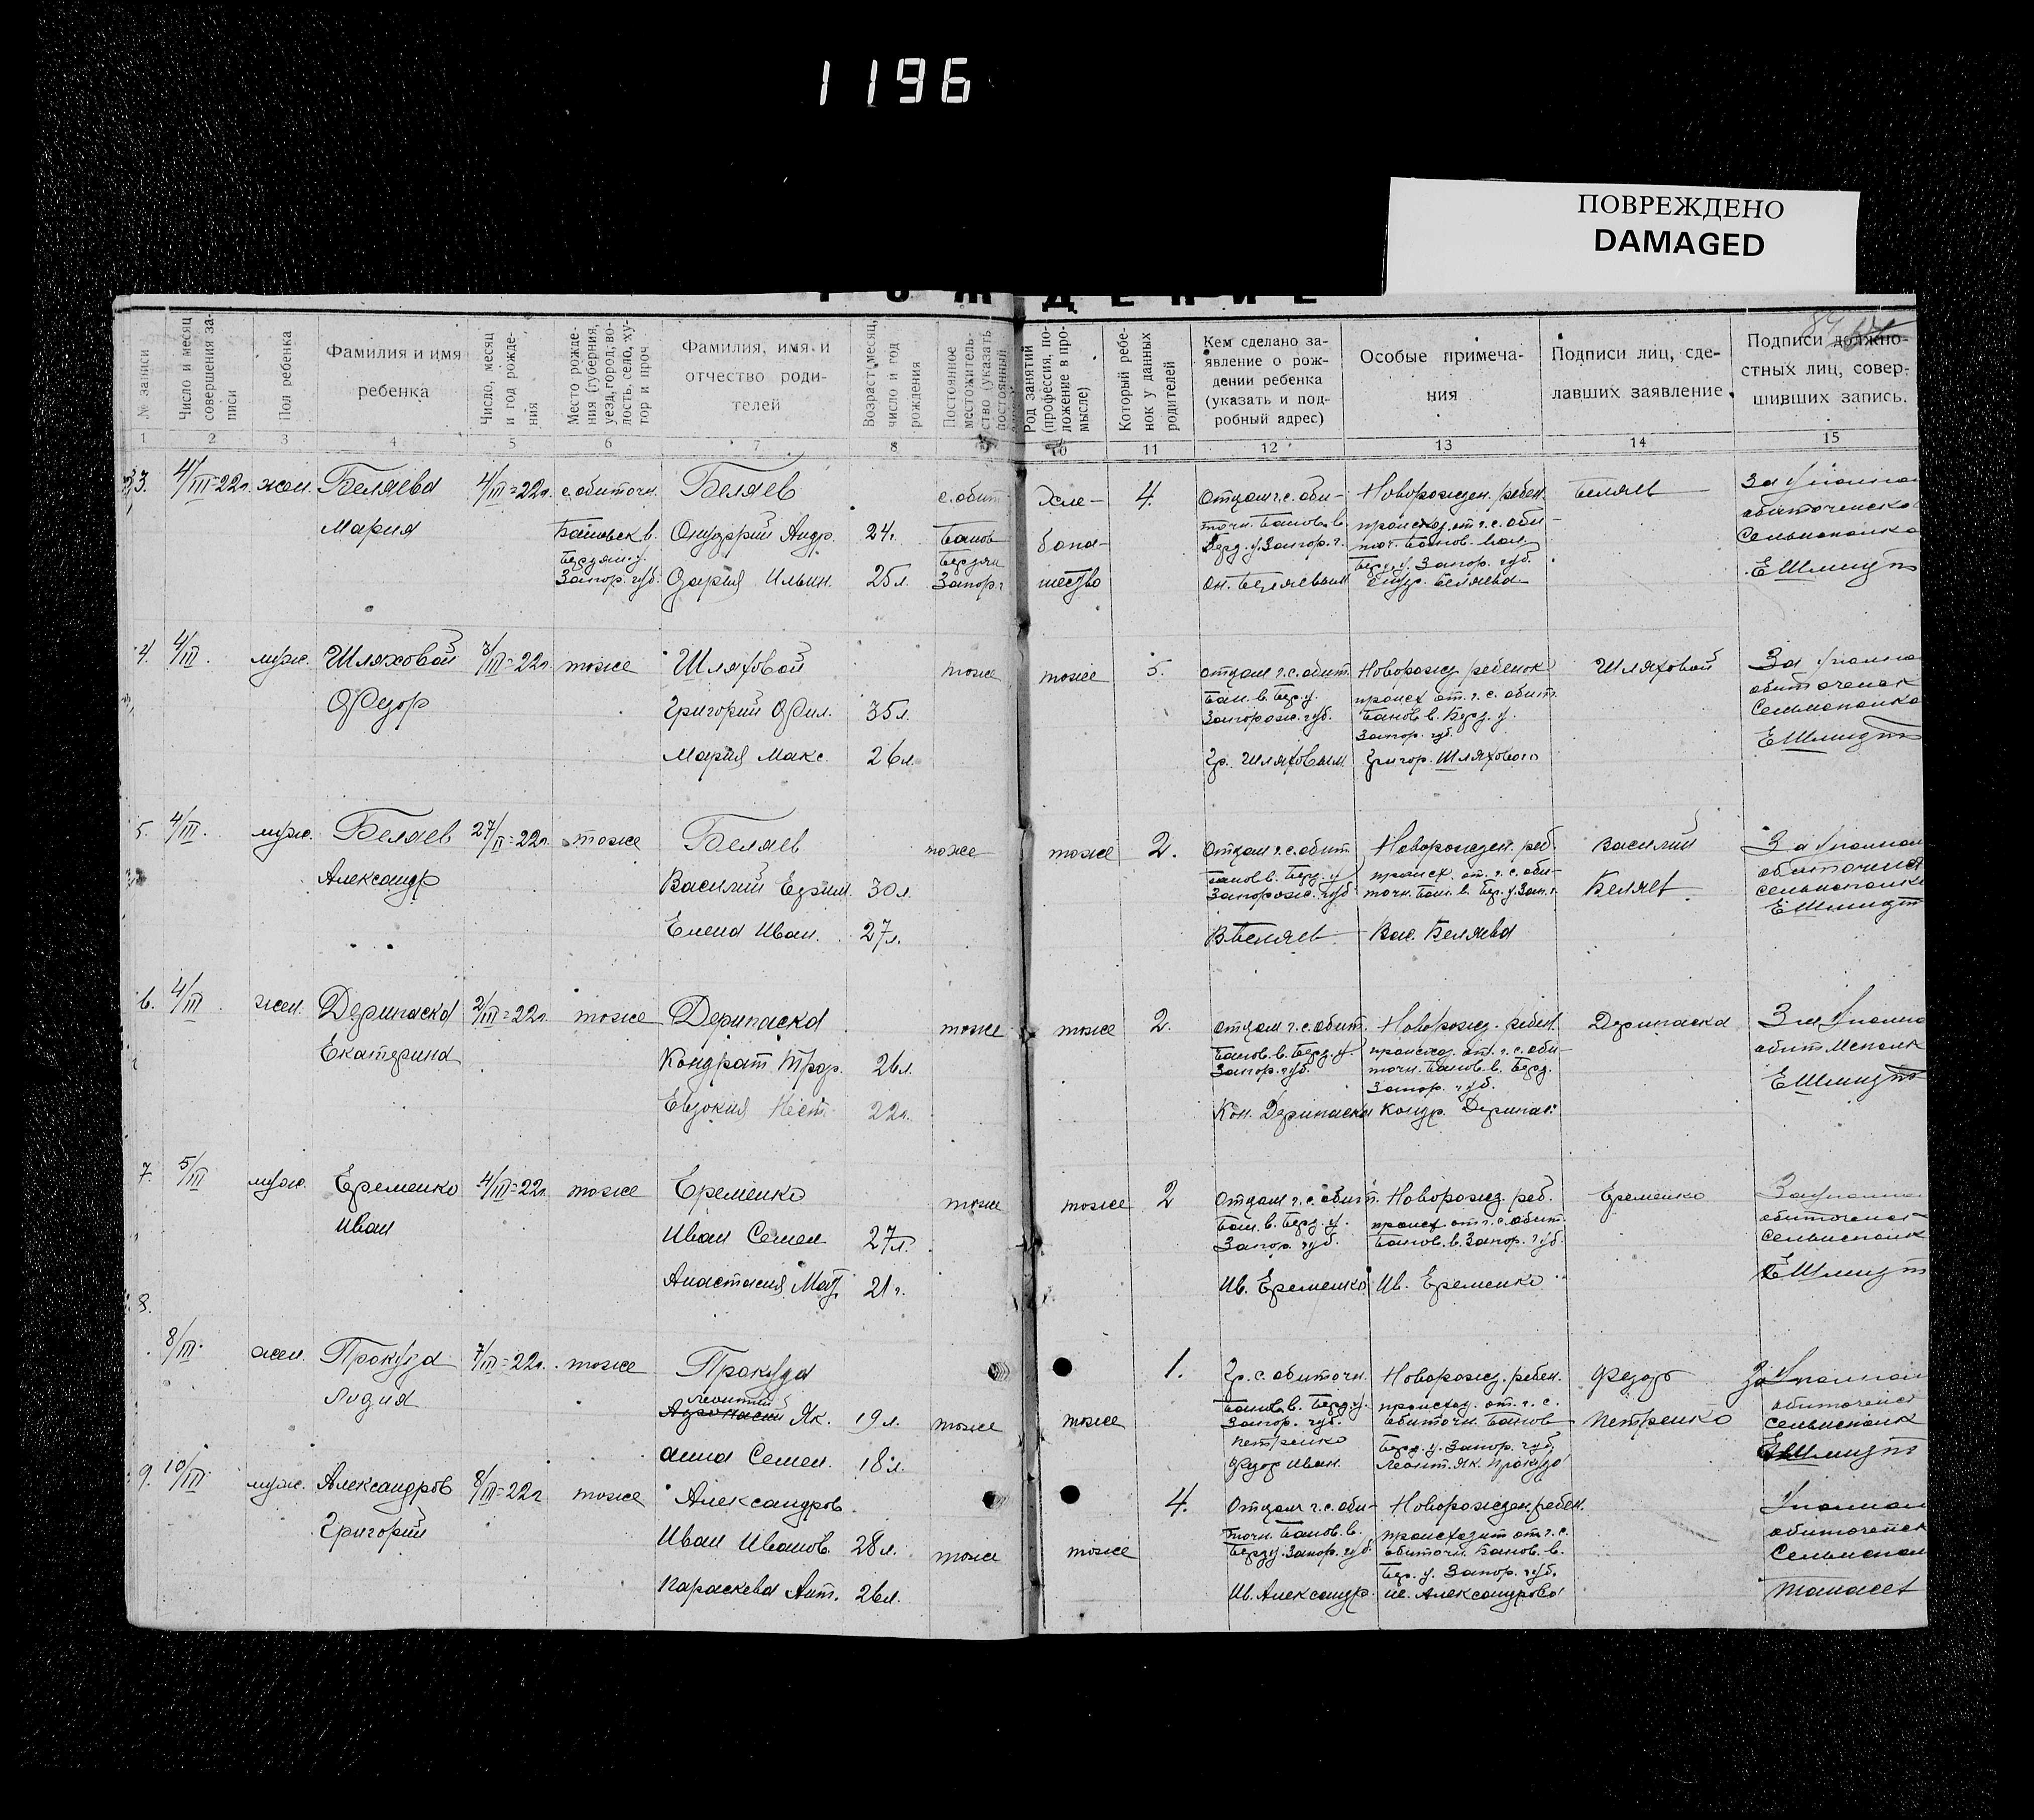 1196
ПОВРЕЖДЕНО
DAMAGED
РОЖДЕНИЕ
№ записи
Число и месяц совершения записи
Пол ребенка
Фамилия и имя ребенка
Число, месяц и год рождения
Место рождения (губерния, уезд, город, волость, село, хутор и проч
Фамилия, имя и отчество родителей
Возраст месяц, число и год рождения
Постоянное местожительство (указать постоянный
Род занятий (профессия, положение в промысле)
Который ребенок у данных родителей
Кем сделано заявление о рождении ребенка (указать и подробный адрес)
Особые примечания
Подписи лиц, сделавших заявление
Подписи должностных лиц, совершивших запись.
1 2 3 4 5 6 7 8 9 10 11 12 13 14 15
33. 4/III=22г. жен. Беляева 4/III=22г. с. обиточн. Беляев с. обит Хле- 4. Отцом г. с. оби- Новорожден. ребен. Беляев
Мария Бановск в. Онуфрий Андр. 24г. Банов бопа- точн. Банов. в. происход. от г. с. оби- обиточенско
Бердян у Бердян Берд. у. Запор. г. Сельисполко
Запор. губ. Дарья Ильин. 25л. Запор. г шество Он. Беляевым Онуф. Беляева ЕШмидт
4. 4/III. муж. Шляховой 3/III=22г. тоже Шляховой тоже тоже 5. отцом г. с. обит. Новорожд ребенок Шляховой
Федор Григорий Фил. 35л. Бан. в. Берд. у. происх от. г. с. обит. обиточенск
Запорож. губ. Банов в. Берд. у. Сельисполко
Запор. губ. ЕШмидт
Мария Макс. 26л. Гр. Шляховым Григор. Шляхового
5. 4/III. муж. Беляев 27/II=22г. тоже Беляев тоже тоже 2. Отцом г. с. обит. Новорожден. реб. Василий
Александр Василий Ефим. 30л. Банов в. Берд. у происх. от. г. с. оби- обиточенск
Запорож. губ. точн. Бан. в. Бер. у. Зап. г. Беляев сельисполк
ЕШмидт
Елена Иван. 27л. В Беляев Вас. Беляева
6. 4/III жен. Дерипаска 2/III=22г. тоже Дерипаска тоже тоже 2. отцом г. с. обит. Новорожд. ребен. Дерипаска
Екатерина Кондрат Троф. 26л. Банов. в. Берд. у. происход. от. г. с. оби- обит Исполк
Запор. губ. точн. Банов. в. Берд.
Запор. губ. ЕШмидт
Евдокия Нест. 22г. Кон. Дерипаска Кондр. Дерипас.
7. 5/III муж. Еременко 4/III=22г. тоже Еременко тоже тоже 2 Отцом г. с. обит. Новорожд. реб. Еременко
Иван Иван Семен 27л. Бан. в. Берд. у. происх от г. с. обит. обиточенск
Запор. губ. Банов. в. Запор. губ. Сельисполк
Анастасия Мат. 21г. Ив. Еременко Ив. Еременко ЕШмидт
8.
8/III. жен. Прокуда 7/III=22г. тоже Прокуда 1. Гр. с. обиточн. Новорожд. ребен. Федор
Лидия Леонтий Банов. в. Берд у. происход. от. г. с. обиточенск
Як. 19л. тоже тоже Запор. губ. обиточн. Банов Петренко сельисполк
Петренко Берд. у. Запор. губ. ЕШмидт
Анна Семен. 18л. Федор Иван. Леонт. Як. Прокуда
9. 10/III. муж. Александров 8/III=22г тоже Александров. 4. Отцом г. с. оби- Новорожден. ребен.
Григорий Иван Иванов. 28л. тоже тоже точн. Банов. в. происходит от г. с. обиточенск
Берд у. Запор. губ. обиточн. Банов. в. Сельиспол
Бер. у. Запор. губ.
Параскева Ант. 26л. Ив. Александр. Ив. Александрова